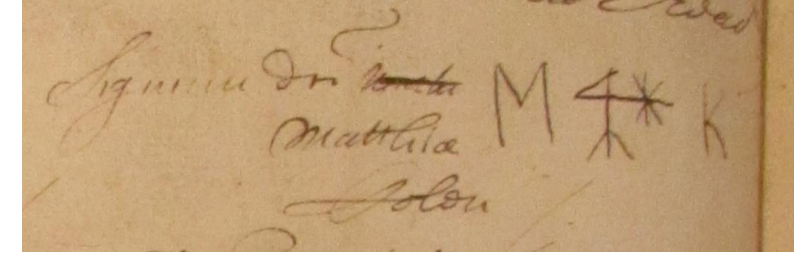 Signum Dni M K
Matthiæ
Solon